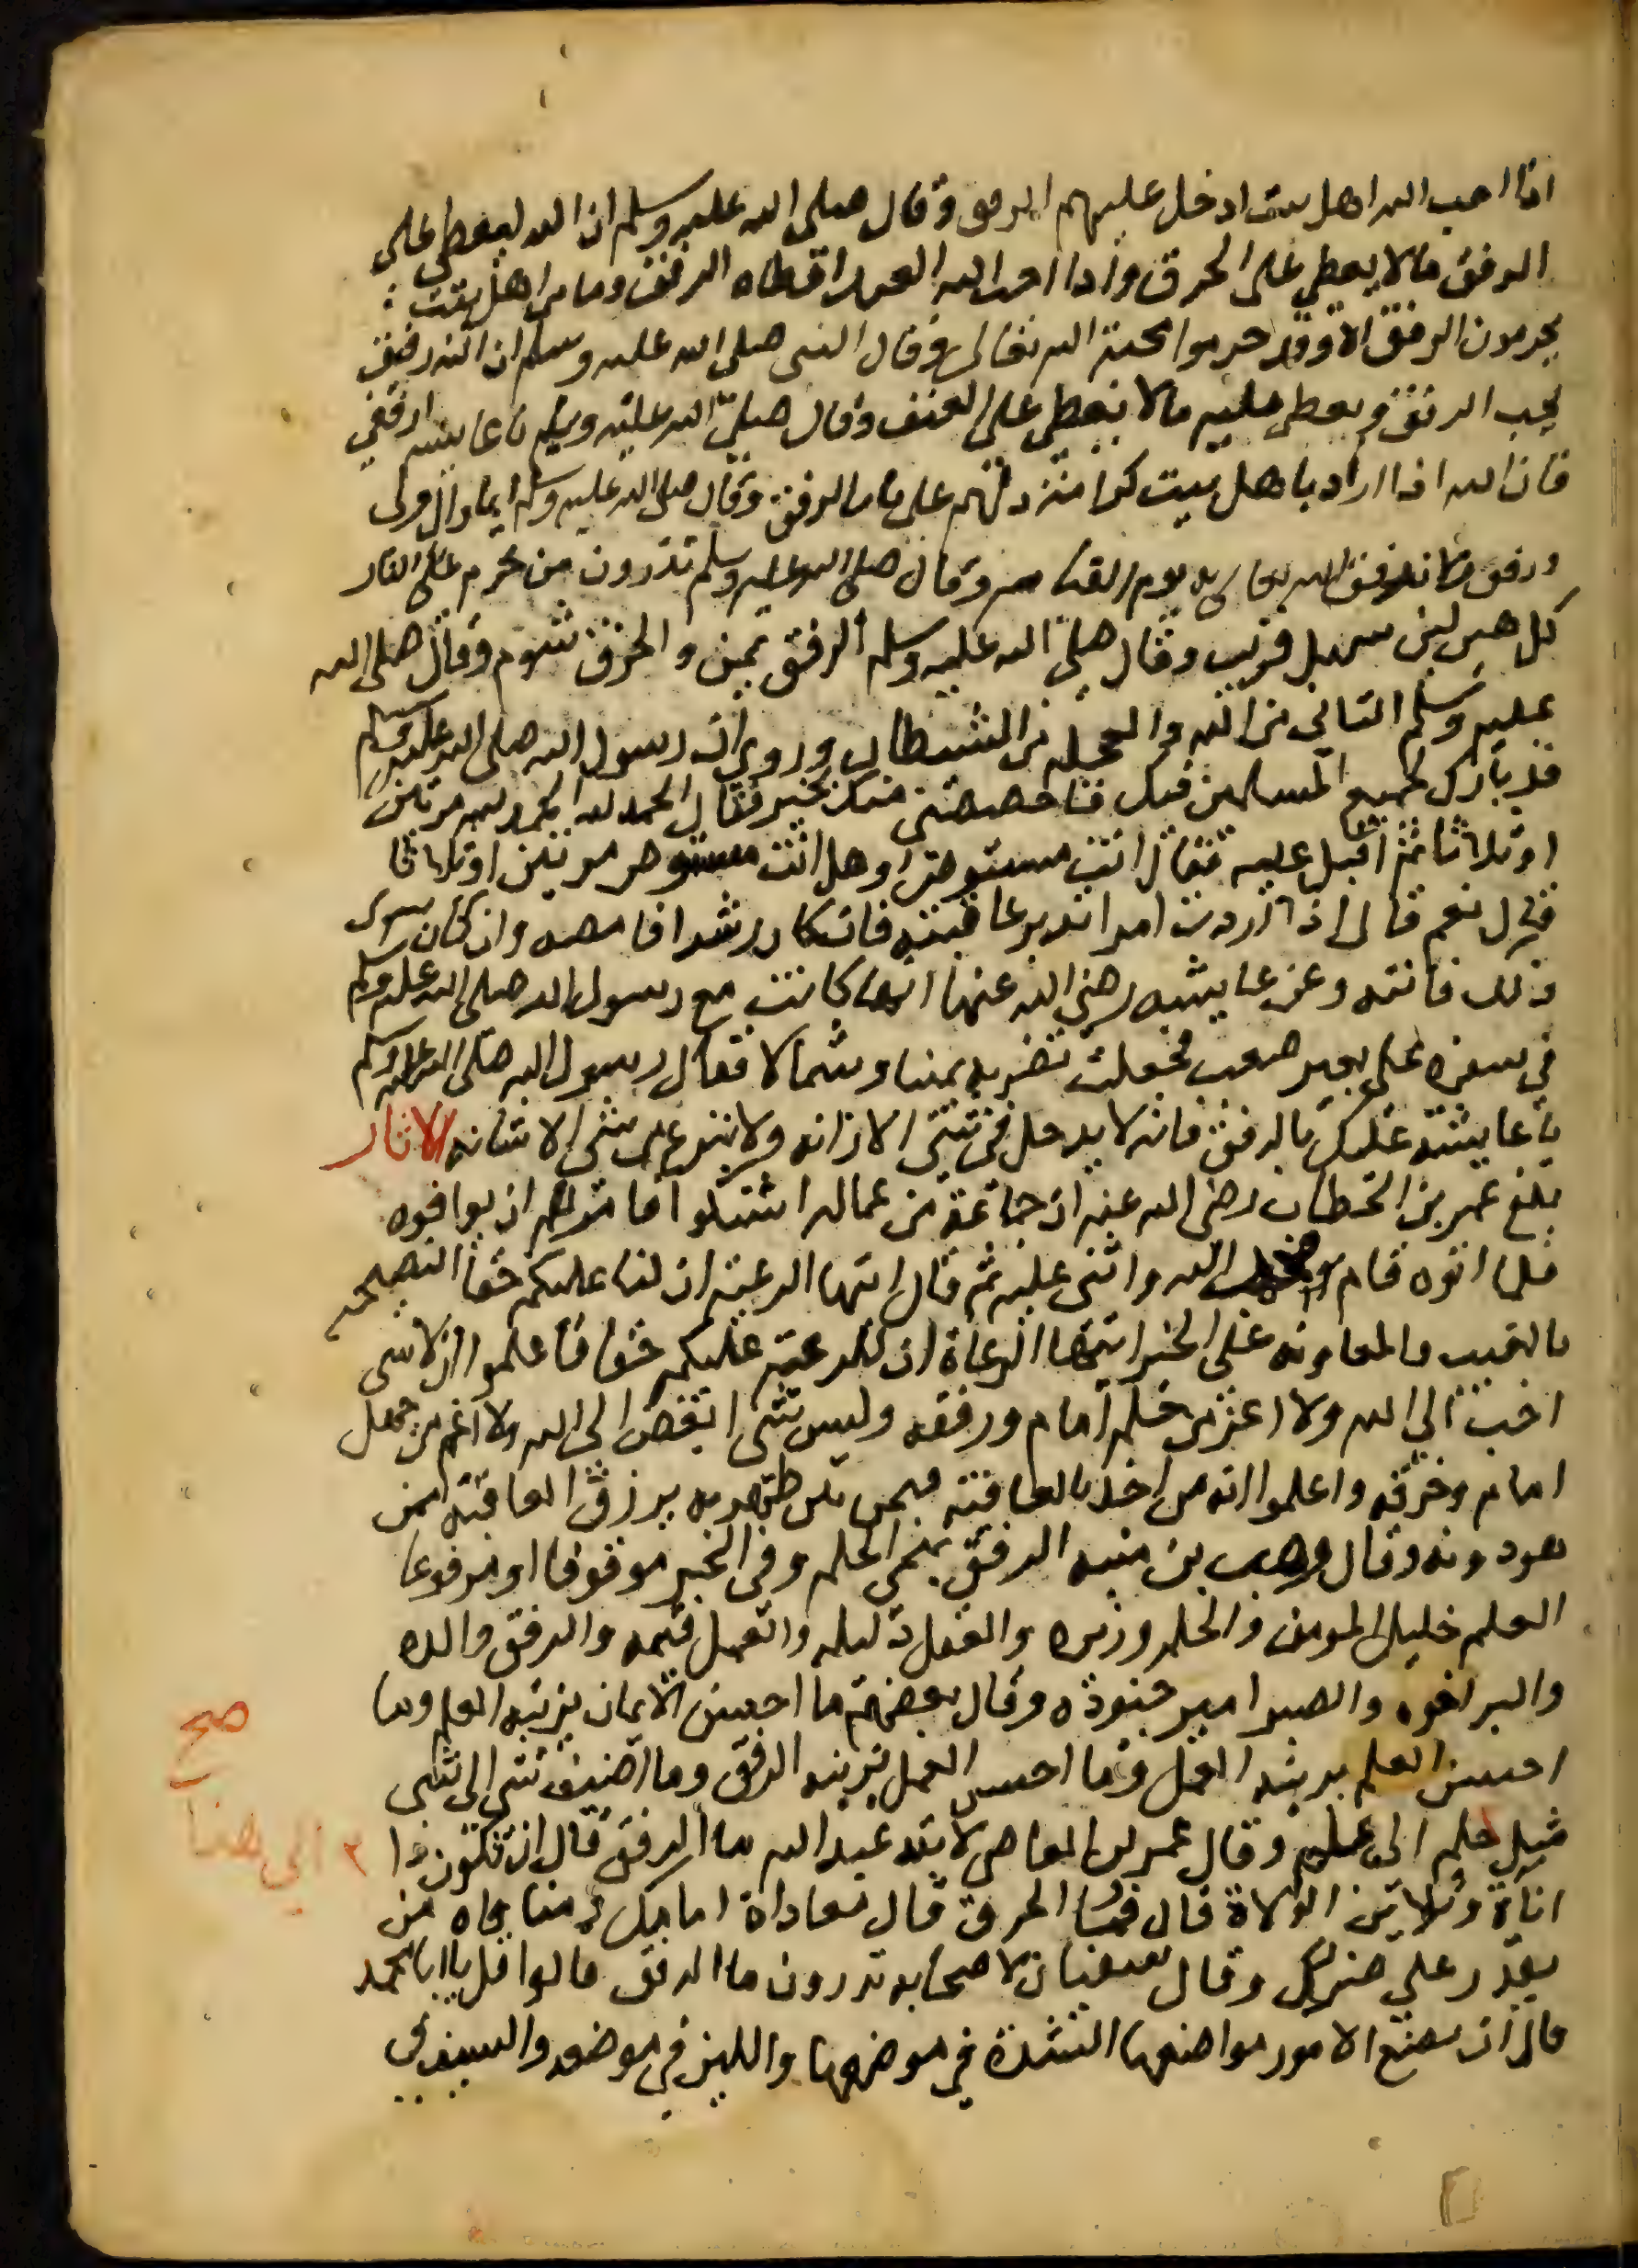 اذا احب الله اهل بيت ادخل عليهم الرفق وقال صلى الله عليه وسلم ان الله ليعطي على
الرفق ما لا يعطي على الخرق واذا احب الله العبد اعطاه الرفق وما من اهل بيت
يحرمون الرفق الا وقد حرموا محبة الله تعالى وقال النبي صلى الله عليه وسلم ان الله رفيق
يحب الرفق ويعطي عليه ما لا يعطي على العنف وقال صلى الله عليه وسلم يا عايشه ارفقي
فان الله اذا اراد باهل بيت كرامة دلهم على باب الرفق وقال صلى الله عليه وسلم ايما وال ولى
ورفق رفق الله تعالى به يوم القيامه وقال صلى الله عليه وسلم تدرون من يحرم على النار
كل هين لين سهل قريب وقال صلى الله عليه وسلم الرفق يمن والخرق شوم وقال صلى الله
عليه وسلم التاني من الله والعجلة من الشيطان وروي ان رسول الله صلى الله عليه وسلم
قد بارك لجميع المسلمين فيك فاخصصني منك بخير فقال الحمد لله الحمد لله مرتين
او ثلاثا ثم اقبل عليه فقال انت مستوص او هل انت مستوص مرتين او ثلاثا
قال نعم قال اذا اردت امرا تدبر عاقبته فان كان رشدا فامضه وان كان سوى
ذلك فانته وعن عايشه رضي الله عنها انها كانت مع رسول الله صلى الله عليه وسلم
في سفره على بعير صعب فجعلت تضربه يمينا وشمالا فقال رسول الله صلى الله عليه وسلم
يا عايشة عليك بالرفق فانه لا يدخل في شي الا زانه ولا ينزع من شي الا شانه الاثار
بلغ عمر بن الخطاب رضي الله عنه ان جماعة من عماله اشتكوا فامرهم ان يوافوه
فلما اتوه قام الله واثنى عليه ثم قال ايتها الرعية ان لنا عليكم حقا النصيحه
بالغيب والمعاونه على الخير ايتها الرعاة ان للرعية عليكم حقا فاعلموا ان لا شي
احب الى الله ولا اعز من حلم امام ورفقه وليس شي ابغض الى الله ولا اغم من جهل
امام وخرقه واعلموا انه من اخذ بالعافية فيمن بين ظهريه يرزق العافية ممن
هو دونه وقال وهب بن منبه الرفق بني الحلم وفي الخبر موقوفا او مرفوعا
العلم خليل المومن والحلم وزيره والعقل دليله والعمل قيمه والرفق والده
والبر اخوه والصبر امير جنوده وقال بعضهم ما احسن الايمان يزينه العلم وما
احسن العلم يزينه العمل وما احسن العمل يزينه الرفق وما اضيف شي الى شي
مثل حلم الى علم وقال عمر بن العاص لابنه عبد الله ما الرفق قال ان تكون ذا
اناة وتلاين الولاة قال فما الخرق قال معاداة امامك ومناواه من
يقدر على ضرك وقال سفيان لاصحابه تدرون ما الرفق قالوا قل يا ابا محمد
قال ان تضع الامور مواضعها الشدة في موضعها واللين في موضعه والسيف في
صح
الى هنا